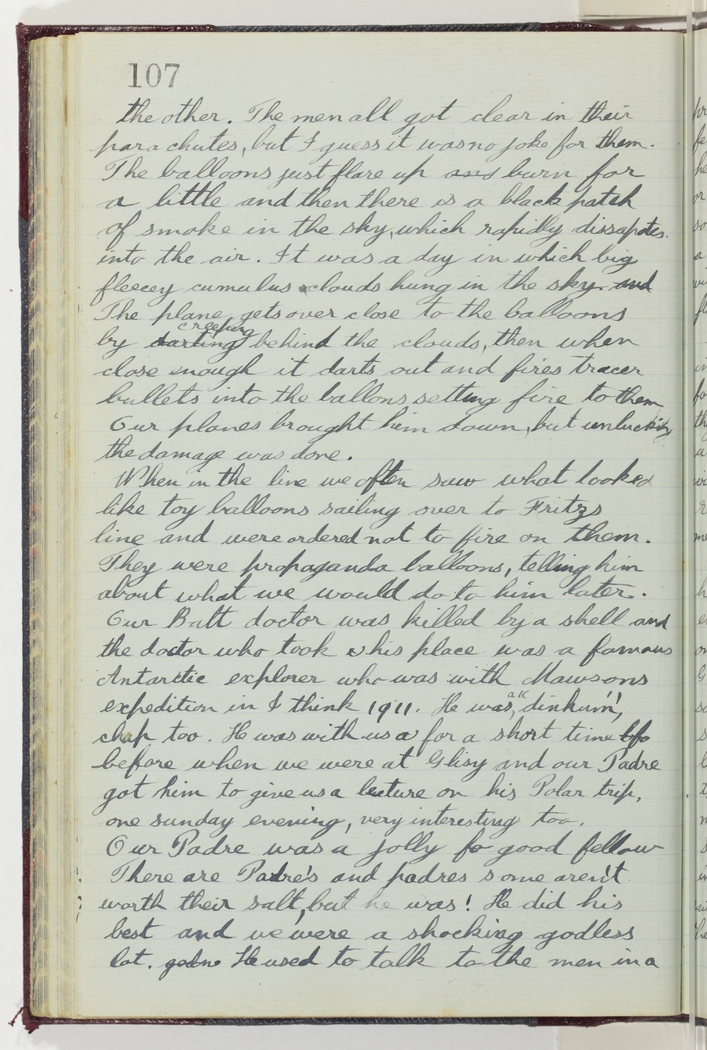 107
the other. The men all got clear in their
parachutes, but I guess it was no joke for them.
The balloons just flare up and burn for
a little and then there is a black patch
of smoke in the sky, which rapidly dissapates
into the air. It was a day in which big
fleecey cumulus clouds hung in the sky. and
The plane gets over close to the balloons
creeping
by darting behind the clouds, then when
close enough it darts out and fires tracer
bullets into the ballons setting fire to them
Our planes brought him down, but unluckily
the damage was done.
When in the line we often saw what looked
like toy balloons sailing over to Fritzs
line and were ordered not to fire on them.
They were propaganda balloons, telling him
about what we would do to him later.
Our Batt doctor was killed by a shell and
the doctor who took his place was a famous
Antarctic explorer who was with Mawsons
expedition in I think 1911. He was a "dinkum",
chap too. He was with us for a short time
before when we were at Glisy and our Padre
got him to give us a lecture on his Polar trip,
one sunday evening, very interesting too.
Our Padre was a jolly fo good fellow
There are Padre's and padres some aren't
worth their salt, but he was! He did his
best and we were a shocking godless
lot. He used to talk to the men in a